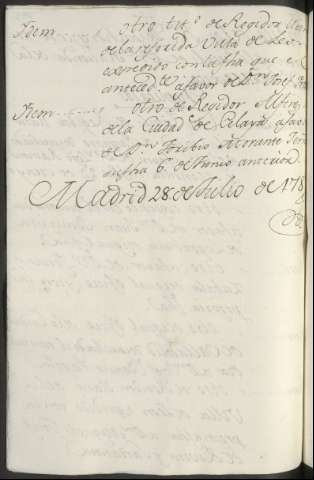 Idem otro tit.º de Regidor
de la referida Villa de Leon
expedido con la fha que e
anteced.te a favor de D.n Josef
Item otro de Regidor
de la Ciudad de Celaya, a favor
de D.n Toribio
su fha 6. de Junio anterior.
Madrid 28 de Julio de 178